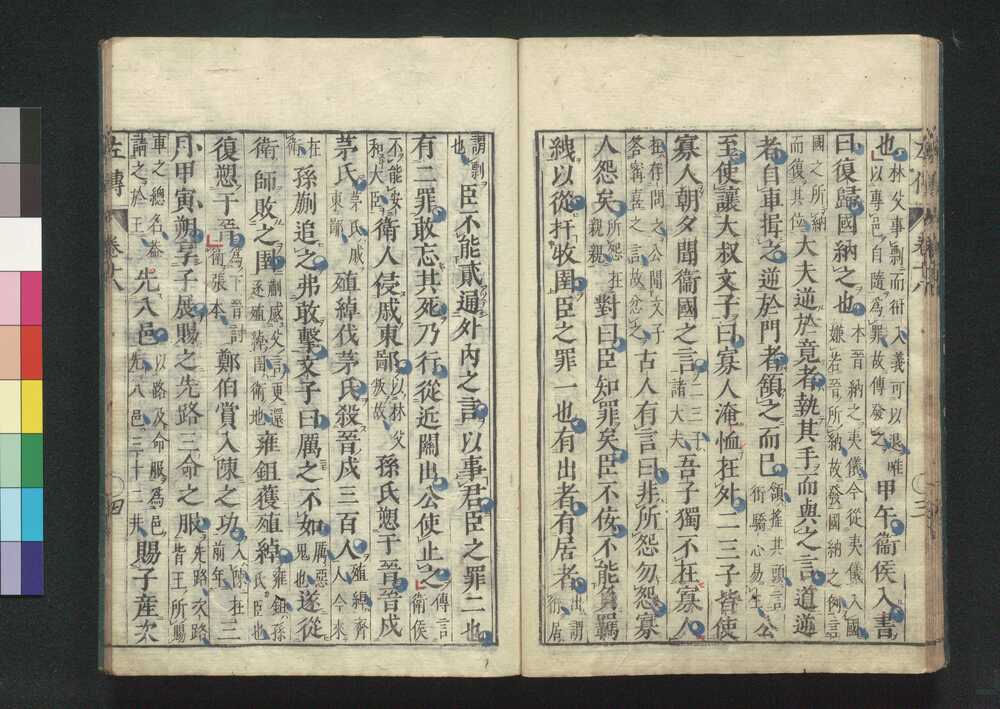 也林父事剽而衎入義可以退唯以專邑自隨爲罪故傳發之甲午衞侯入書
曰復歸國納之也本晉納之夷儀今從夷儀入國嫌若晉所納故發國納之例言
國之所納而復其位大夫逆於竟者執其手而與之言道逆
者自車揖之逆於門者頷之而已頷搖其頭言衎驕心易生公
至使讓大叔文子曰寡人淹恤在外二三子皆使
寡人朝夕聞衞國之言二三子諸大夫吾子獨不在寡人
在存問之公聞文子答甯喜之言故忿之古人有言曰非所怨勿怨寡
人怨矣所怨在親親對曰臣知罪矣臣不佞不能負羈
絏以從扞牧圉臣之罪一也有出者有居者出謂衎居
謂剽也臣不能貳通外内之言以事君臣之罪二也
有二罪敢忘其死乃行從近關出公使止之傳言衞侯
不能安和大臣衞人侵戚東鄙以林父叛故孫氏愬于晉晉戍
茅氏茅氏戚東鄙殖綽伐茅氏殺晉戍三百人殖綽齊人今來
在衞孫蒯追之弗敢擊文子曰厲之不如厲惡鬼也遂從
衞師敗之圉蒯感父言更還逐殖綽圉衞地雍鉏獲殖綽雍鉏孫氏臣也
復愬于晉爲下晉討衞張本鄭伯賞入陳之功入陳在前年三
月甲寅朔享子展賜之先路三命之服先路次路皆王所賜
車之總名蓋請之於王先八邑以路及命服爲邑先八邑三十二井賜子產次
左傳 卷十八 四